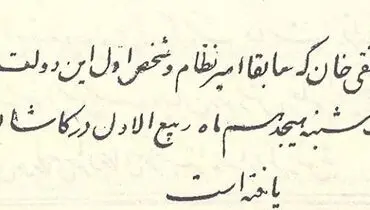 تقی خان که سابقا امیر نظام و شخص اول این دولت
شنبه هیجدهم ماه ربیع الاول در کاشا
یافته است